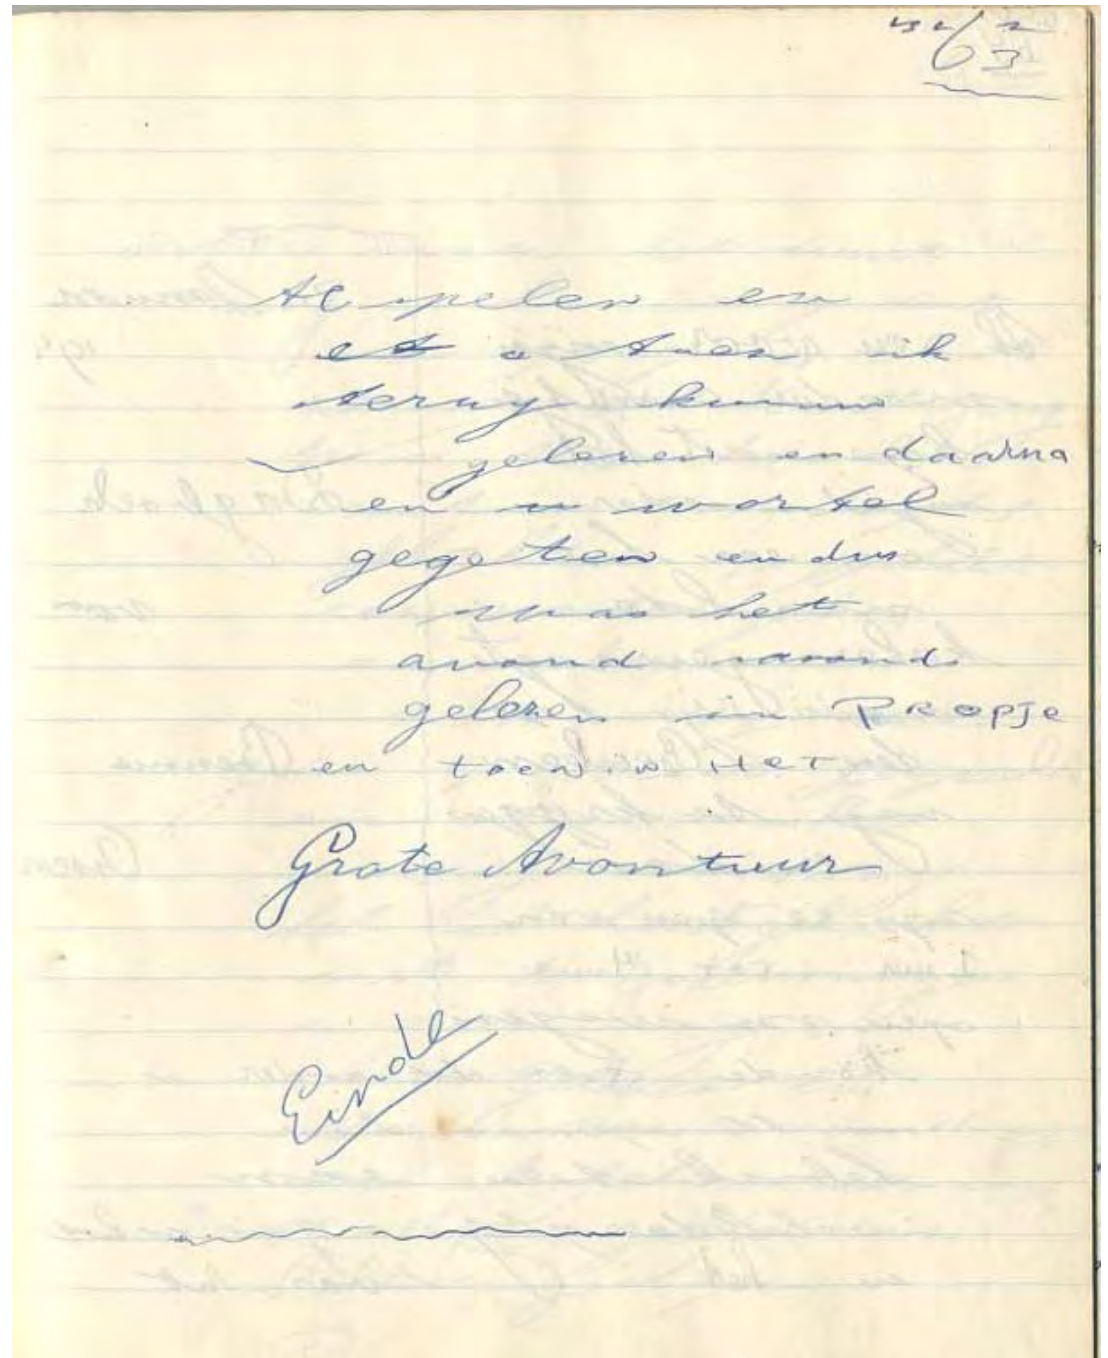 63
spelen en
ik
terug
gelezen en daarna
en n wortel
gegeten en dus
was het
avond savonds
gelezen in PROPJE
en toen in HET
Grote Avontuur
Einde